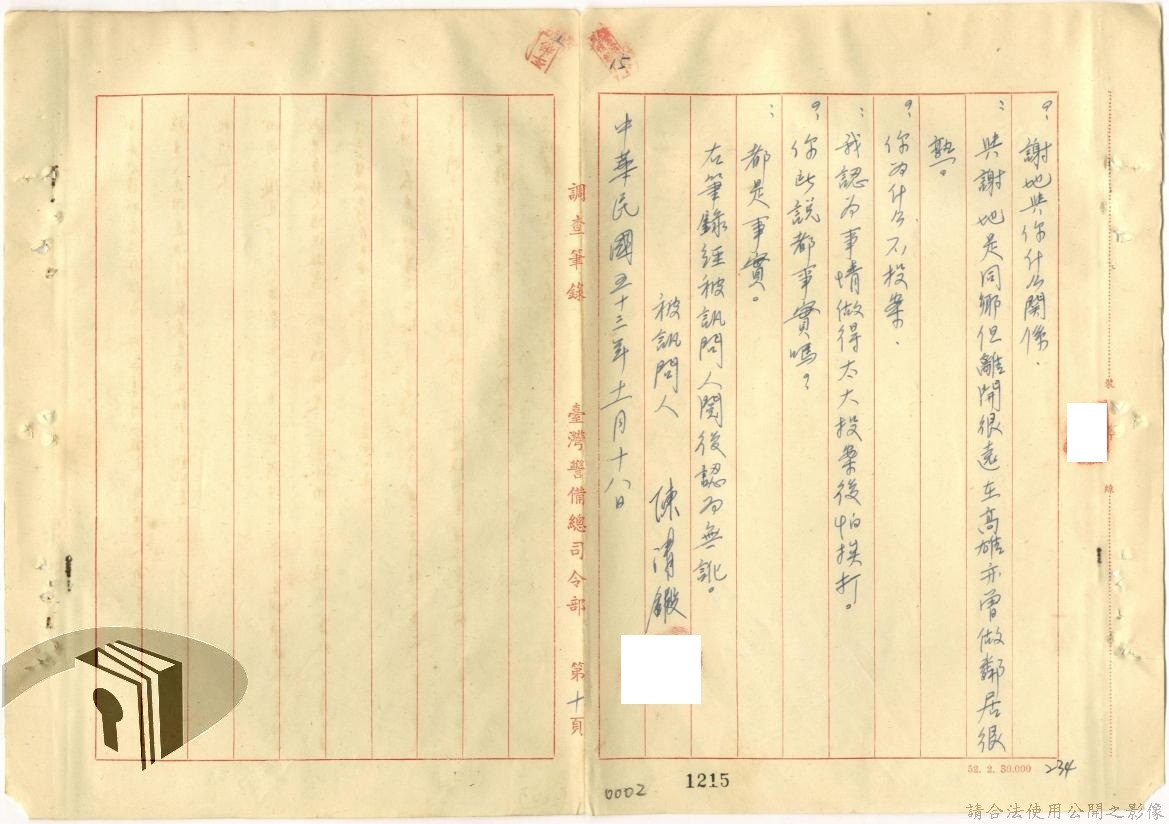 15
?：謝地與你什么關係．
：與謝地是同鄉但離開很遠在高雄亦曾做鄰居很
熟。
?：你為什么不投案．
：我認為事情做得太大投案後怕挨打。
?：你所說都事實嗎？
：都是事實。
右筆錄經被訊問人閱後認為無訛。
被訊問人 陳清
中華民國五十三年十一月十八日
調查筆錄 臺灣警備總司令部 第十頁
裝
線
52. 2. 30.000
234
1215
0002
請合法使用公開之影像